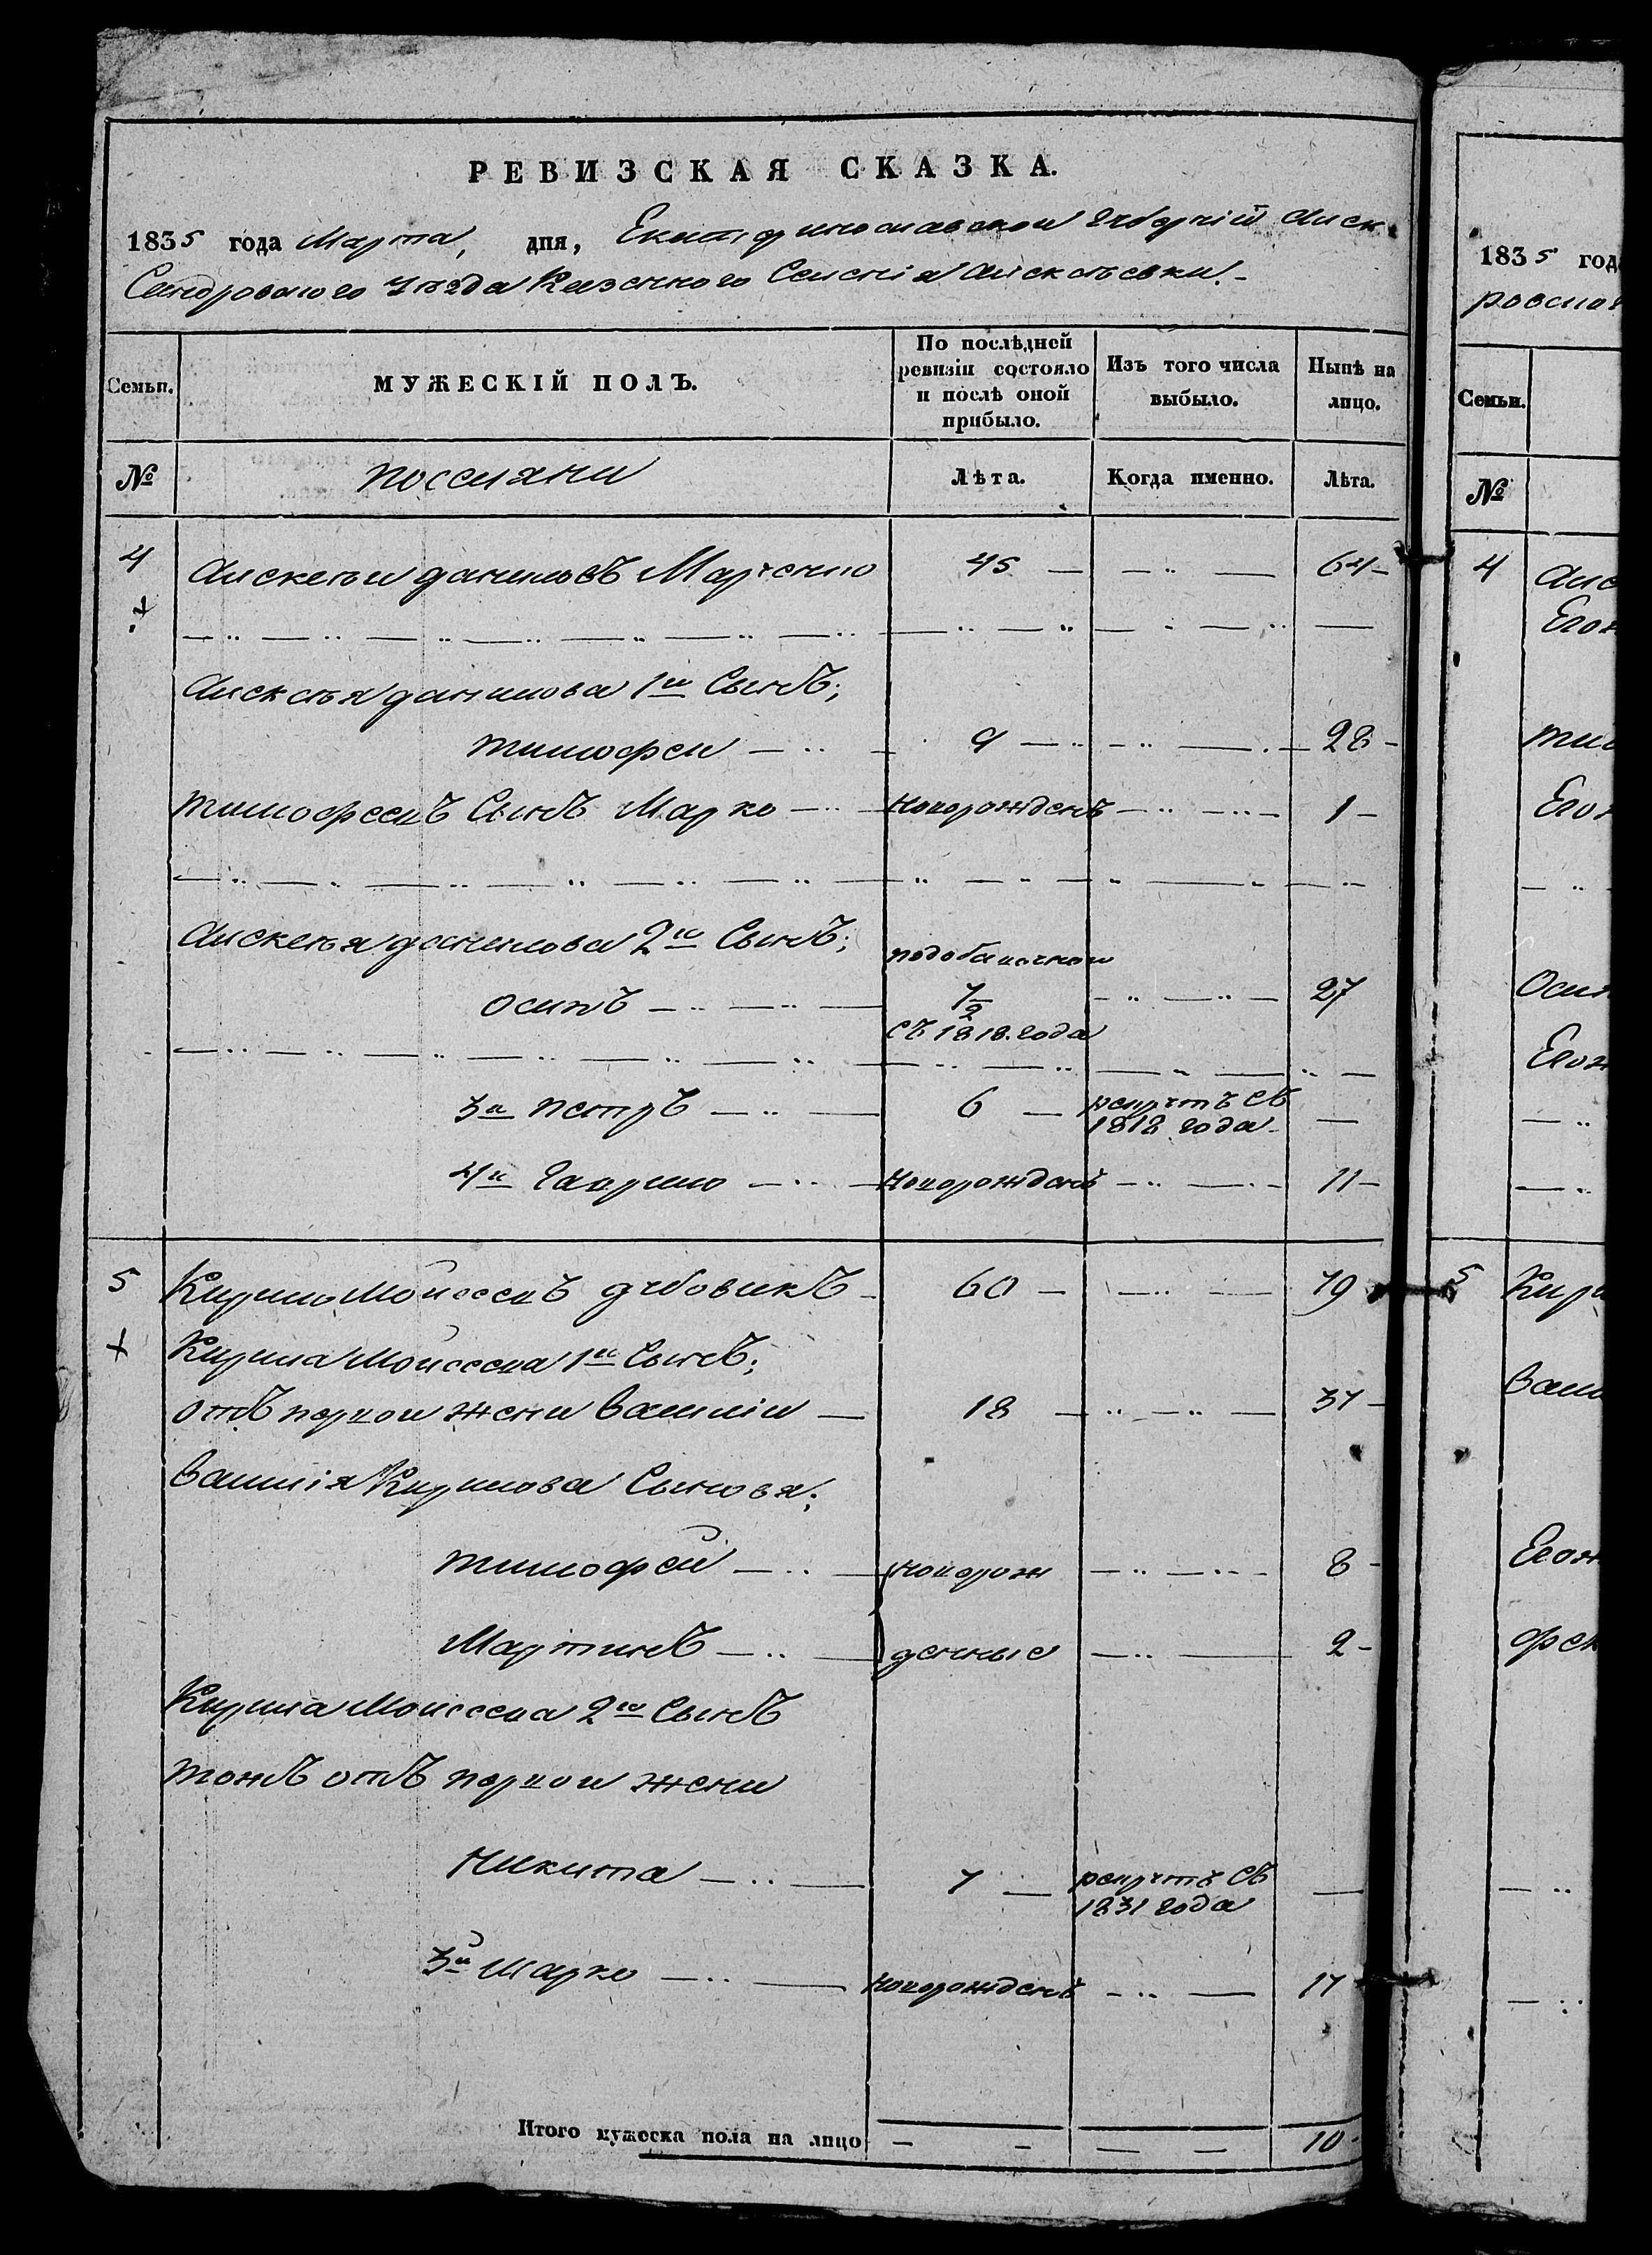 РЕВИЗСКАЯ СКАЗКА.
1835 года Марта, дня, Екатеринославской Губернии Алек
Сандровского уезда Казенного Селения Алексеевки.
Семьи. МУЖЕСКІЙ ПОЛЪ. По послѣдней ревизіи состояло и послѣ оной прибыло. Изъ того числа выбыло. Нынѣ на лицо.
№ поселяни Лѣта. Когда именно. Лѣта.
4 Алексеи даниловъ Марченко 45 — 64
Алексея данилова 1й Сынъ;
тимофеи 9 28
тимофеевъ Сынъ Марко Новорожденъ 1
Алексея данилова 2й Сынъ;
осипъ 7½ съ 1818. года 27
3й петръ 6 рекрутъ съ 1818 года
4й Гаврило Новорожденъ 11
5 Кирило Мойсеевъ дубовикъ 60 79
Кирила Мойсеева 1й Сынъ;
отъ первои жени Василіи 18 37
Василія Кирилова Сыновя;
тимофей новорож 8
Мартинъ денные 2
Кирила Моисеева 2й Сынъ
тожъ отъ первои жени
Никита 7 рекрутъ съ 1831 года
3й Марко новорожденъ 17
Итого мужеска пола на лицо 10
1835 год
ровског
Семьи.
№
4 Але
Его
тим
Его
Осип
Его
5 Кири
Васи
Его